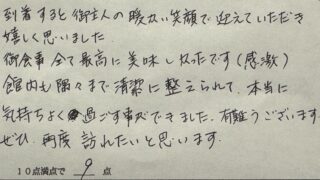 到着すると御主人の暖かい笑顔で迎えていただき
嬉しく思いました
御食事全て最高に美味しかったです(感激)
館内も隅々まで清潔に整えられて、本当に
気持ちよく過ごす事ができました。有難うございます
ぜひ再度訪れたいと思います
10点満点で 9 点